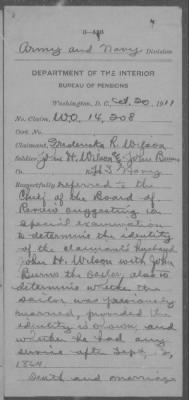 3-443
4
Army and Navy Division
DEPARTMENT OF THE INTERIOR
BUREAU OF PENSIONS
Washington, D. C., Oct. 20, 1911
No. Claim, W.O. 14,208
Cert. No.
Claimant, Fredericka R. Wilson
Soldier, John H. Wilson & John Burns
U.S. Navy
Respectfully referred to the
Chief of the Board of
Review suggesting a
special examination
to determine the identity
of the claimant's husband
John H. Wilson with John
Burns the sailor, also to
determine whether the
sailor was previously
married, provided the
identity is shown, and
whether he had any
service after Sept.
1864.
Death and marriage